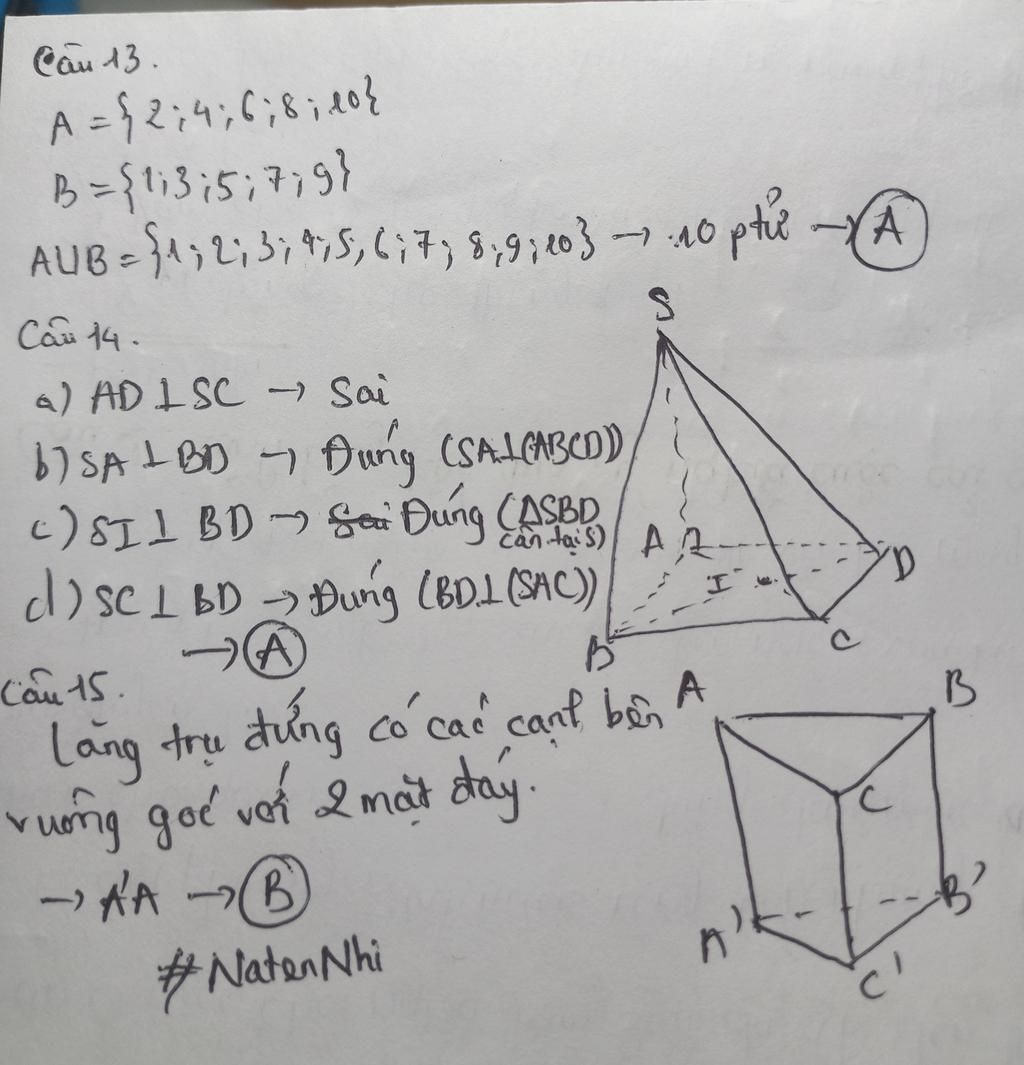 Câu 13.
A = {2;4;6;8;10}
B = {1;3;5;7;9}
AUB = {1;2;3;4;5,6;7;8;9;10} → 10 ptử → A
Câu 14.
a) AD⊥SC → Sai
b) SA⊥BD → Đúng (SA⊥(ABCD))
c) SI⊥BD → Sai Đúng (ΔSBD cân tại S)
d) SC⊥BD → Đúng (BD⊥(SAC))
→ A
S
A
I
D
B
C
Câu 15.
lăng trụ đứng có các cạnh bên
vuông góc với 2 mặt đáy.
→ A'A → B
#NatenNhi
A
B
C
A'
B'
C'